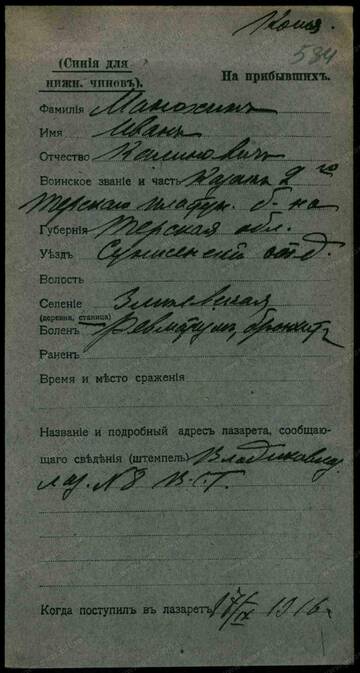 Копія.
584
(Синія для
нижн. чиновъ).
На прибывшихъ.
Фамилія Манохинъ
Имя Иванъ
Отчество Калиновичъ
Воинское званіе и часть Казакъ 2го
Терскаго пластун. б-на
Губернія Терская обл.
Уѣздъ Сунженскій отд.
Волость
Селеніе
(деревня, станица)
Боленъ Ревматизм, бронхит
Раненъ
Время и мѣсто сраженія
Названіе и подробный адресъ лазарета, сообщаю-
щаго свѣдѣнія (штемпель) Владикавказ
лаз. № 8 В.С.Г.
Когда поступилъ въ лазаретъ 17/IX 1916 г.